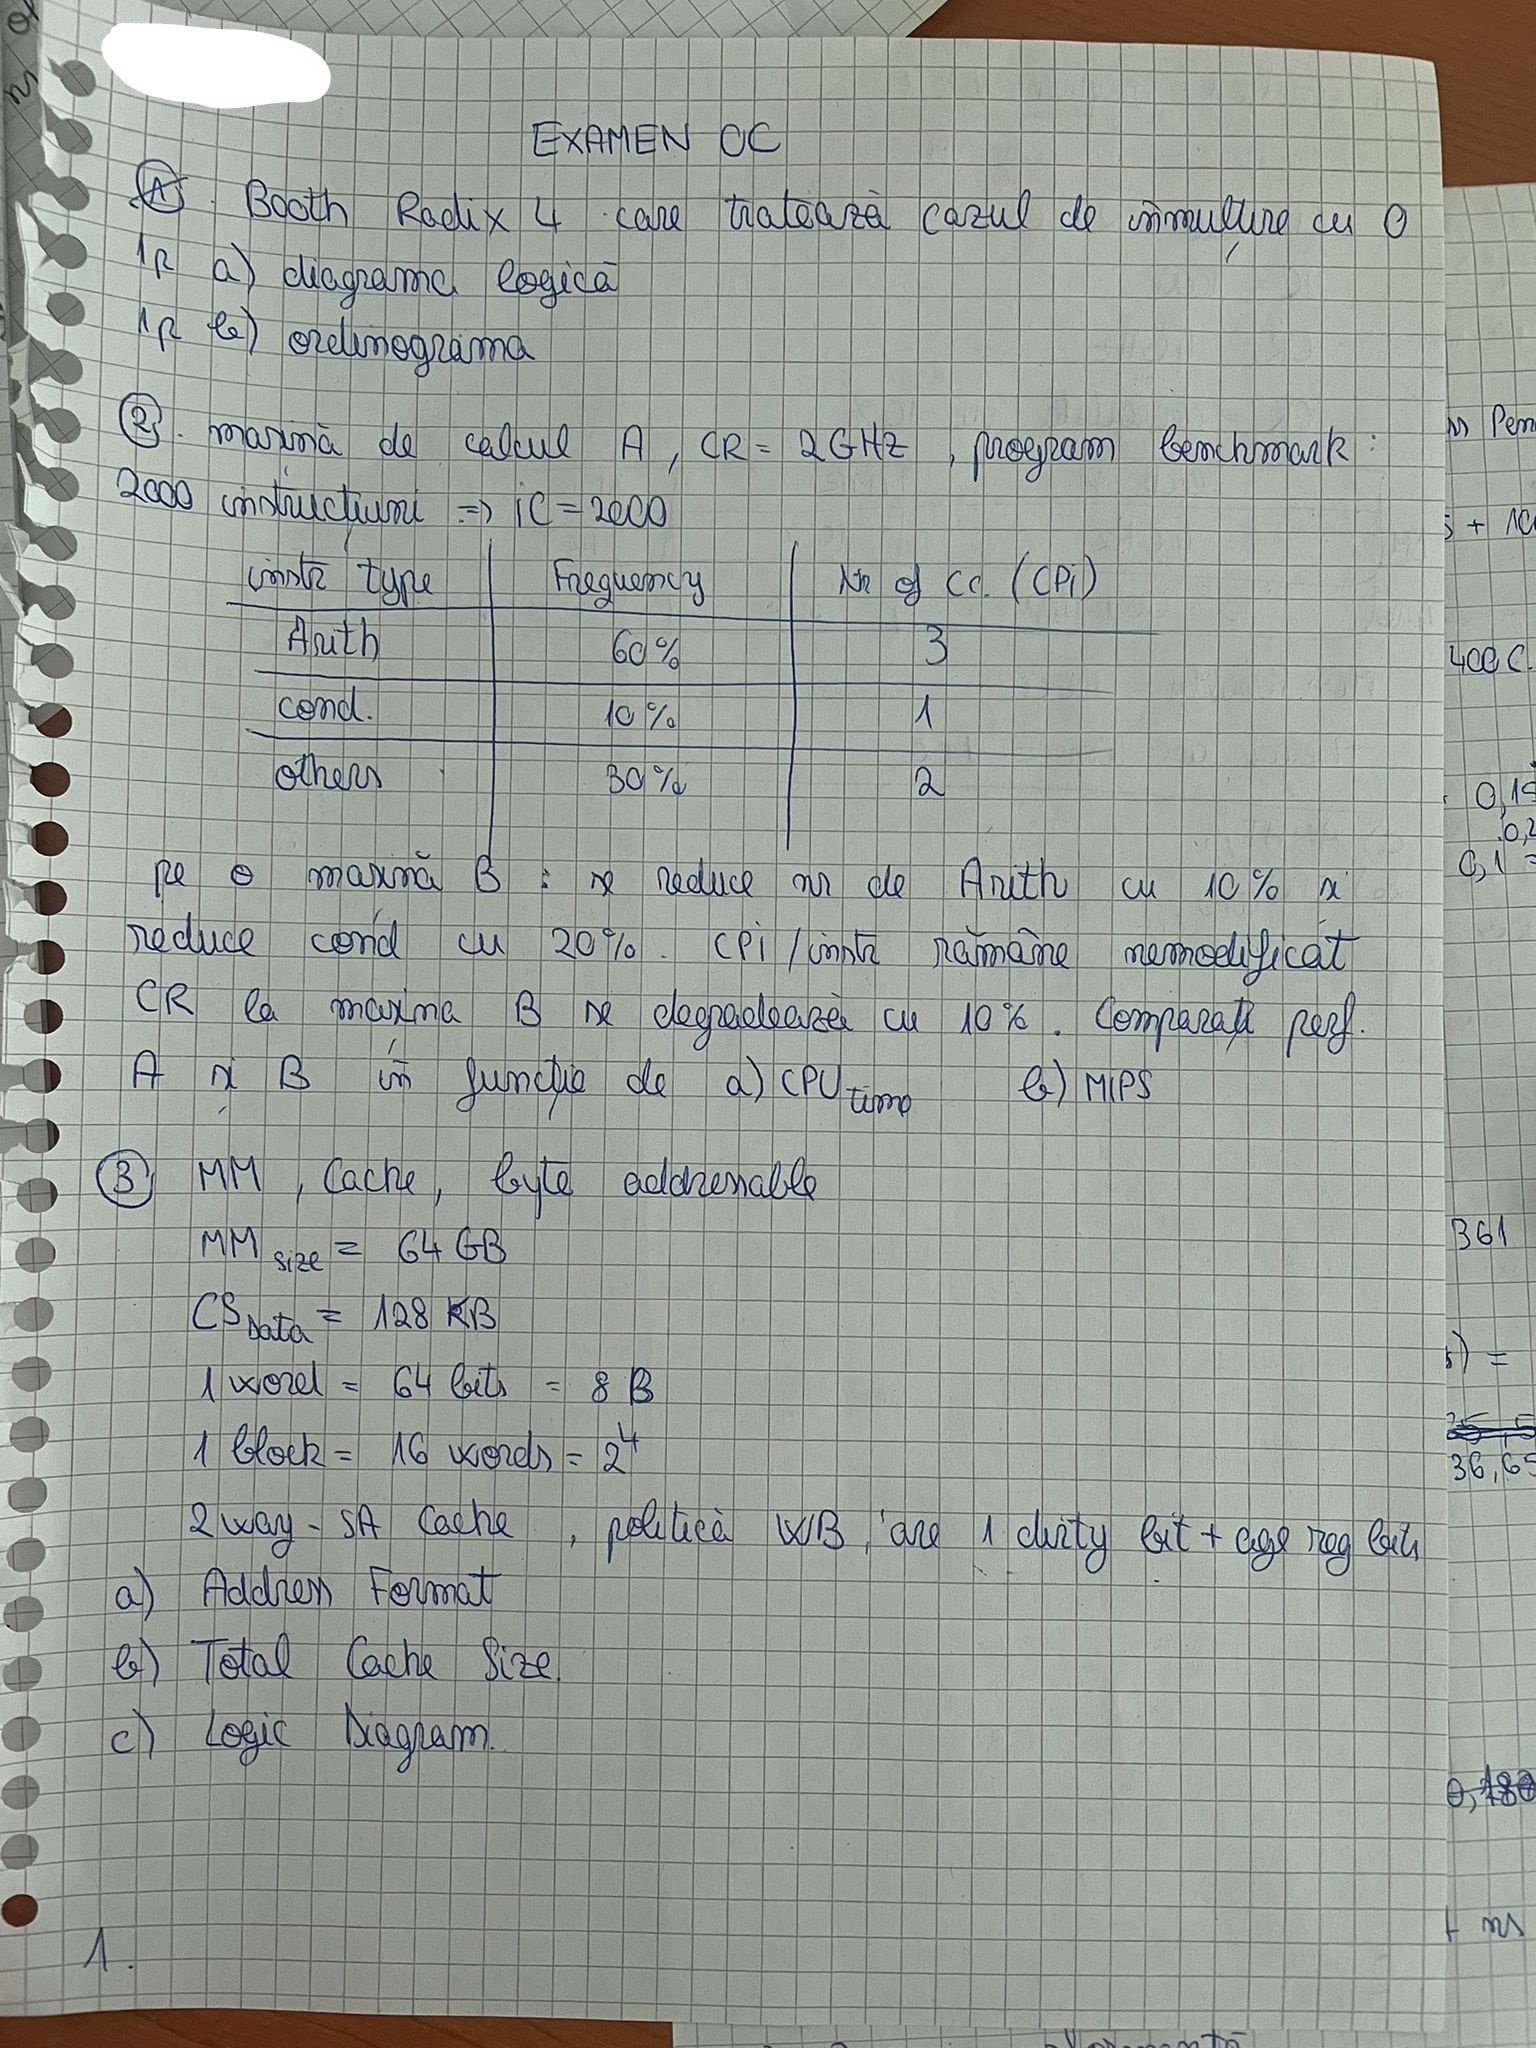 EXAMEN OC
1. Booth Radix 4 care tratează cazul de înmulțire cu 0
1p a) diagrama logică
1p b) ordinograma
2. mașină de calcul A, CR = 2GHz, program benchmark:
2000 instrucțiuni => iC = 2000
instr type Frequency Nr of cc. (CPi)
Arith 60% 3
cond. 10% 1
others 30% 2
pe o mașină B : se reduce nr de Arith cu 10% și
reduce cond cu 20%. CPi/instr rămâne nemodificat
CR la mașina B se degradează cu 10%. Comparați perf.
A și B în funcție de a) CPU time b) MIPS
3 MM, Cache, byte addressable
MM size = 64 GB
CS Data = 128 KB
1 word = 64 bits = 8 B
1 block = 16 words = 2⁴
2 way - SA Cache, politică WB, are 1 dirty bit + age reg bits
a) Address Format
b) Total Cache Size.
c) Logic Diagram.
1.
5 + 10
400 C.
0,15
0,2
0,1 =
361
) =
36,65
ns